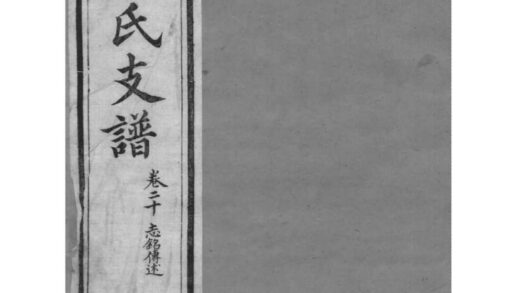 氏支譜
卷二十 志銘傳述